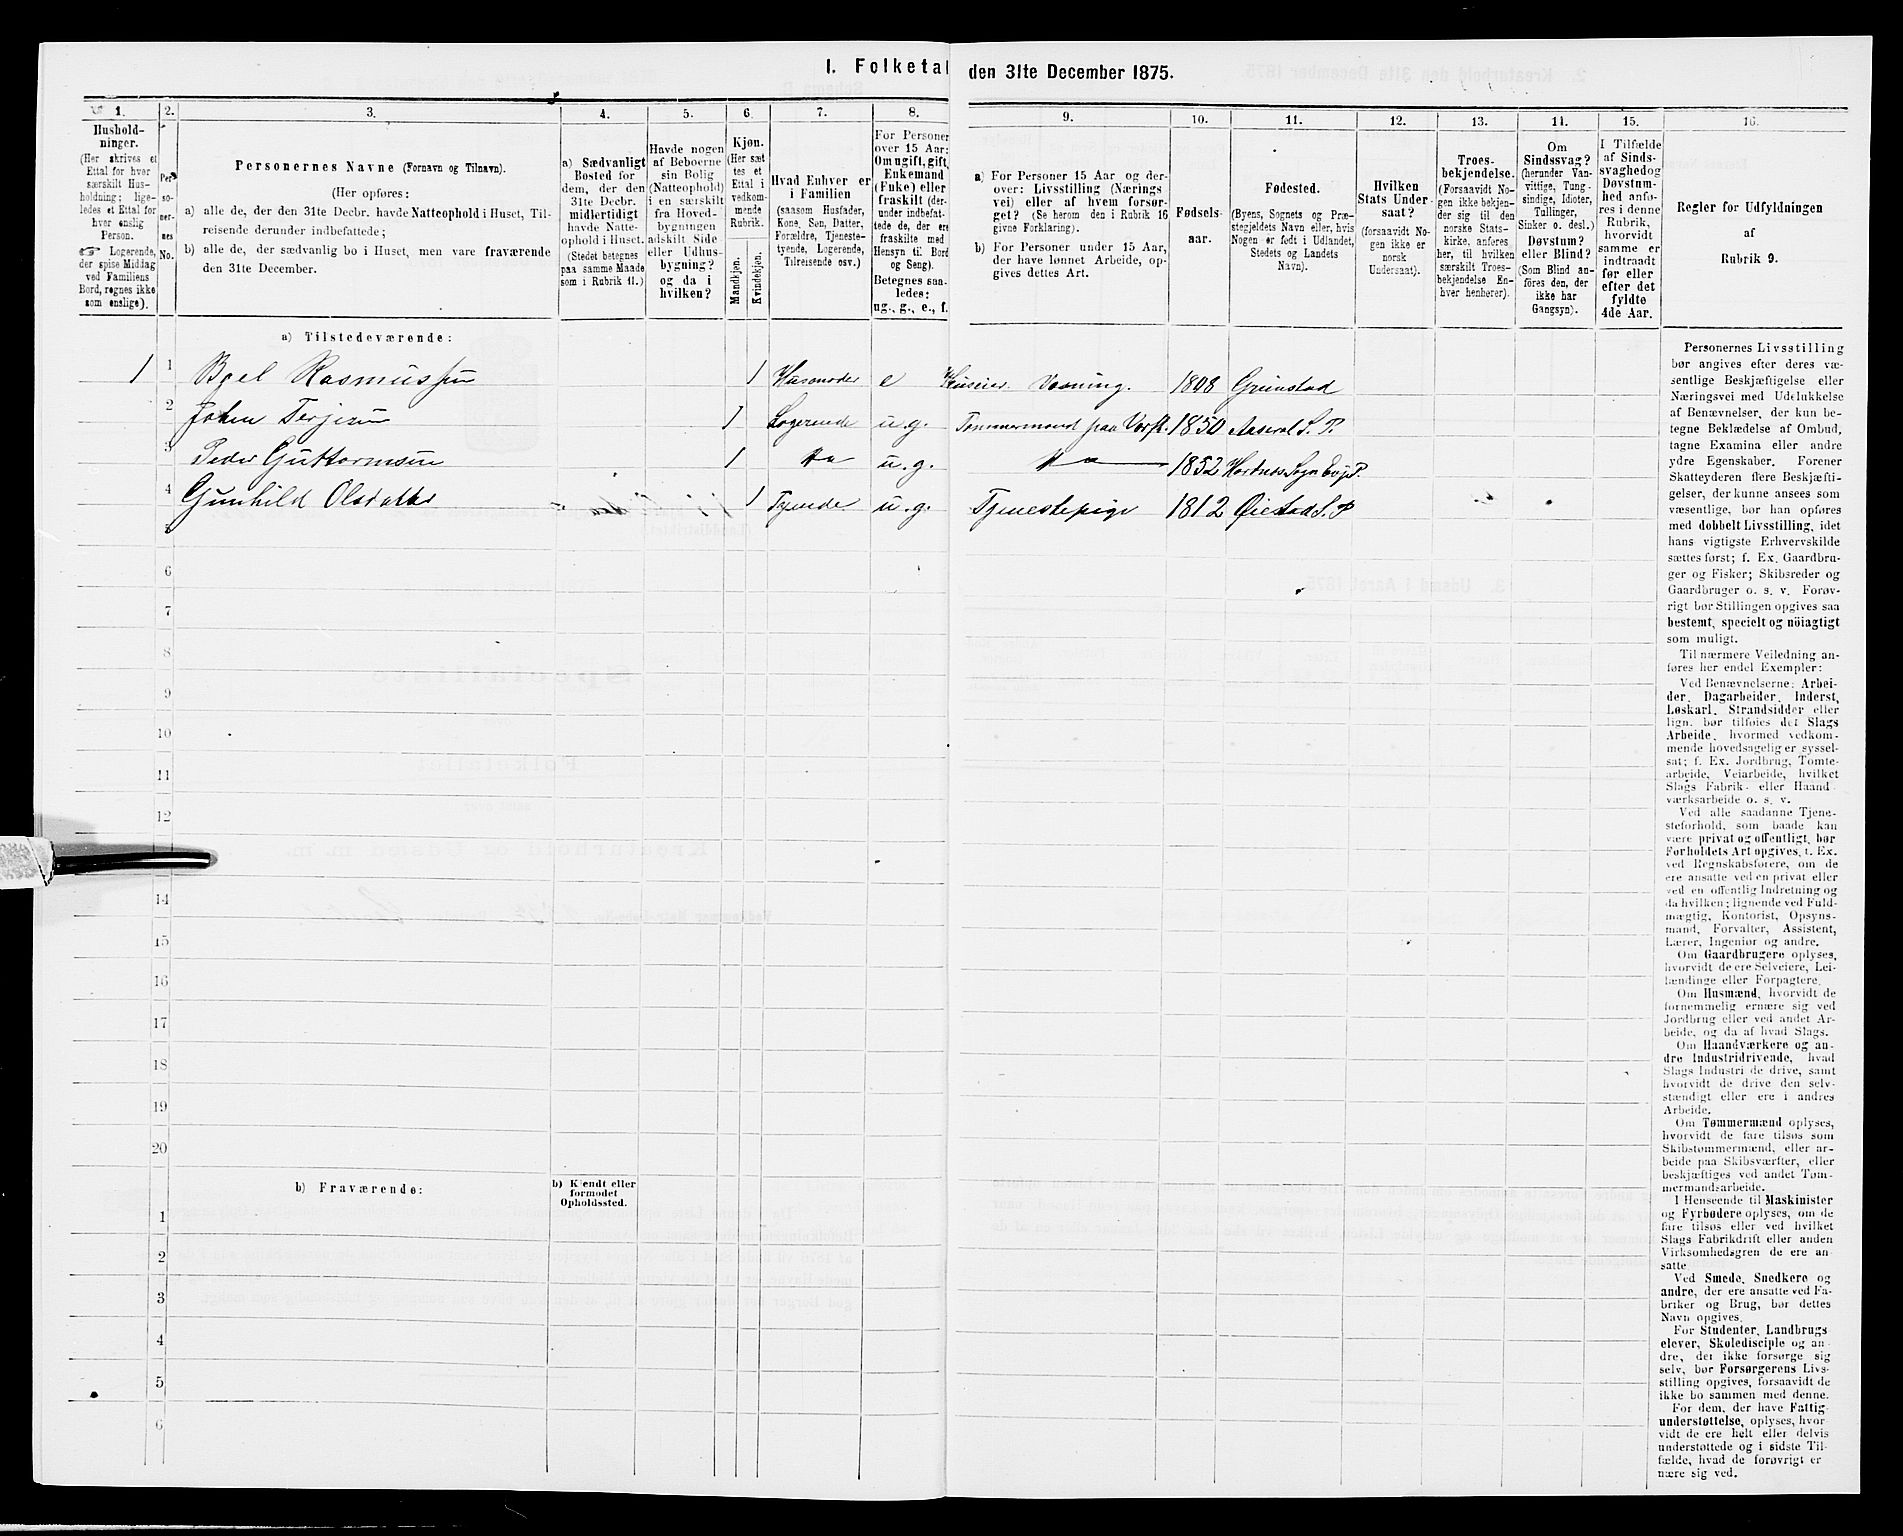 I. Folketal den 31te December 1875.
1.
Hushold-
ninger.
(Her skrives et
Ettal for hver
særskilt Hus-
holdning; lige-
ledes et Ettal for
hver enslig
Person.
☞ Logerende,
der spise Middag
ved Familiens
Bord, regnes ikke
som enslige).
2.
Per-
so-
ner-
nes
No.
3.
Personernes Navne (Fornavn og Tilnavn).
(Her opføres:
a) alle de, der den 31te Decbr. havde Natteophold i Huset, Til-
reisende derunder indbefattede;
b) alle de, der sædvanlig bo i Huset, men vare fraværende
den 31te December.
4.
a) Sædvanligt
Bosted for
dem, der den
31te Decbr.
midlertidigt
havde Natte-
ophold i Huset.
(Stedet betegnes
paa samme Maade
som i Rubrik 11.)
5.
Havde nogen
af Beboerne
sin Bolig
(Natteophold)
i en særskilt
fra Hoved-
bygningen
adskilt Side-
eller Udhus-
bygning?
og da i
hvilken?
6.
Kjøn.
(Her sæt-
tes et
Ettal i
vedkom-
mende
Rubrik.
Mandkjøn.
Kvindekjøn.
7.
Hvad Enhver er
i Familien
(saasom Husfader,
Kone, Søn, Datter,
Forældre, Tjeneste-
tyende, Logerende,
Tilreisende osv.)
8.
For Personer
over 15 Aar:
Om ugift, gift,
Enkemand
(Enke) eller
fraskilt (der-
under indbefat-
tede de, der ere
fraskilte med
Hensyn til Bord
og Seng).
Betegnes saa-
ledes:
ug., g., e., f.
9.
a) For Personer 15 Aar og der-
over: Livsstilling (Nærings-
vei) eller af hvem forsør-
get? (Se herom den i Rubrik 16
givne Forklaring).
b) For Personer under 15 Aar,
der have lønnet Arbeide, op-
gives dettes Art.
10.
Fødsels-
aar.
11.
Fødested.
(Byens, Sognets og Præ-
stegjeldets Navn eller, hvis
Nogen er født i Udlandet,
Stedets og Landets
Navn).
12.
Hvilken
Stats Under-
saat?
(forsaavidt No-
gen ikke er
norsk
Undersaat).
13.
Troes-
bekjendelse.
(Forsaavidt No-
gen ikke bekjen-
der sig til den
norske Stats-
kirke, anføres
her, til hvilken
særskilt Troes-
bekjendelse En-
hver henhører).
14.
Om
Sindssvag?
(herunder Van-
vittige, Tung-
sindige, Idioter,
Tullinger,
Sinker o. desl.)
Døvstum?
eller Blind?
(Som Blind an-
føres den, der
ikke har
Gangsyn).
15.
I Tilfælde
af Sinds-
svaghed og
Døvstum-
hed anfø-
res i denne
Rubrik,
hvorvidt
samme er
indtraadt
før eller
efter det
fyldte
4de Aar.
16.
Regler for Udfyldningen
af
Rubrik 9.
a) Tilstedeværende:
1 1 Rasmussen 1 Husmoder e Huseier. 1808 Grimstad
2 Johan Terjesen 1 Logerende u.g. Tømmermand paa Værft. 1850 Aaseral S. P.
3 Peder Guttormsen 1 Do u.g. Do 1852 Hordnes Sogn Evje P.
4 Gunhild Olsdatter 1 Tyende u.g. Tjenestepige 1812 Øiestad S. P
5
6
7
8
9
10
11
12
14
15
16
17
18
19
20
b) Fraværende:
b) Kjendt eller
formodet
Opholdssted.
1
2
3
4
5
6
Personernes Livsstilling
bør angives efter deres væ-
sentlige Beskjæftigelse eller
Næringsvei med Udelukkelse
af Benævnelser, der kun be-
tegne Beklædelse af Ombud,
tagne Examina eller andre
ydre Egenskaber. Forener
Skatteyderen flere Beskjæfti-
gelser, der kunne ansees som
væsentlige, bør han opføres
med dobbelt Livsstilling, idet
hans vigtigste Erhvervskilde
sættes først; f. Ex. Gaardbru-
ger og Fisker; Skibsreder og
Gaardbruger o. s. v. Forøv-
rigt bør Stillingen opgives saa
bestemt, specielt og nöiagtigt
som muligt.
Til nærmere Veiledning an-
føres her endel Exempler:
Ved Benævnelserne: Arbei-
der, Dagarbeider, Inderst,
Løskarl, Strandsidder eller
lign. bør tilføies det Slags
Arbeide, hvormed vedkom-
mende hovedsagelig er syssel-
sat; f. Ex. Jordbrug, Tomte-
arbeide, Veiarbeide, hvilket
Slags Fabrik- eller Haand-
værksarbeide o. s. v.
Ved alle saadanne Tjene-
steforhold, som baade kan
være privat og offentligt, bør
Forholdets Art opgives, t. Ex.
ved Regnskabsførere, om de
ere ansatte ved en privat eller
ved en offentlig Indretning og
da hvilken; lignende ved Fuld-
mægtig, Kontorist, Opsyns-
mand, Forvalter, Assistent,
Lærer, Ingeniør og andre.
Om Gaardbrugere oplyses,
hvorvidt de ere Selveiere, Lei-
lændinge eller Forpagtere.
Om Husmænd, hvorvidt de
fornemmelig ernære sig ved
Jordbrug eller ved andet Ar-
beide, og da af hvad Slags.
Om Haandværkere og an-
dre Industridrivende, hvad
Slags Industri de drive, samt
hvorvidt de drive den selv-
stændigt eller ere i andres
Arbeide.
Om Tømmermænd oplyses,
hvorvidt de fare tilsøs som
Skibstømmermænd, eller ar-
beide paa Skibsværfter, eller
beskjæftiges ved andet Tøm-
mermandsarbeide.
I Henseende til Maskinister
og Fyrbødere oplyses, om de
fare tilsøs eller ved hvilket
Slags Fabrikdrift eller anden
Virksomhedsgren de ere an-
satte
Ved Smede, Snedkere og
andre, der ere ansatte ved Fa-
briker og Brug, bør dettes
Navn opgives.
For Studenter, Landbrugs-
elever, Skoledisciple og an-
dre, der ikke forsørge sig
selv, bør Forsørgerens Livs-
stilling opgives, forsaavidt de
ikke bo sammen med denne.
For dem, der have Fattig-
understøttelse, oplyses, hvor-
vidt de ere helt eller delvis
understøttede og i sidste Til-
fælde, hvad de forøvrigt er-
nære sig ved.